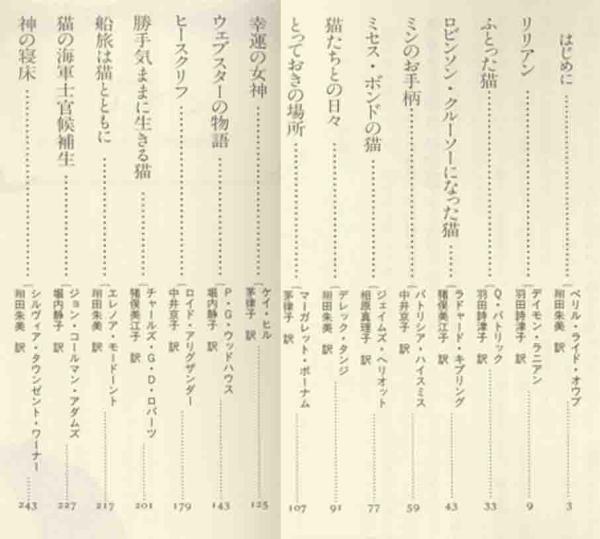 はじめに………ベリル・ライド・オウプ 田朱美 訳………3
リリアン………デイモン・ラニアン 羽田詩津子 訳………9
ふとった猫………Q・パトリック 羽田詩津子 訳………33
ロビンソン・クルーソーになった猫………ラドャード・キプリング 猪俣美江子 訳………43
ミンのお手柄………パトリシア・ハイスミス 中井京子 訳………59
ミセス・ボンドの猫………ジェイムズ・ヘリオット 相原真理子 訳………77
猫たちとの日々………デレック・タンジ 田朱美 訳………91
とっておきの場所………マーガレット・ボーナム 茅律子 訳………107
幸運の女神………ケイ・ヒル 茅律子 訳………125
ウェブスターの物語………P・G・ウッドハウス 堀内静子 訳………143
ヒースクリフ………ロイド・アリグザンダー 中井京子 訳………179
勝手気ままに生きる猫………チャールズ・G・D・ロバーツ 猪俣美江子 訳………201
船旅は猫とともに………エレノア・モードーント 田朱美 訳………217
猫の海軍士官候補生………ジョン・コールマン・アダムズ 堀内静子 訳………227
神の寝床………シルヴィア・タウンゼント・ワーナー 田朱美 訳………243